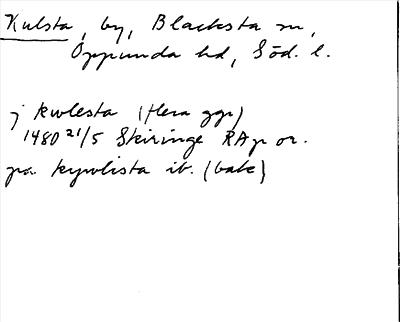 Kulsta, by, Blacksta sn,
Oppunda hd, Söd. l.
j kwlesta (flera ggr)
1480 21/5 Skiringe RAp or.
pa kywlista ib. (bakc)